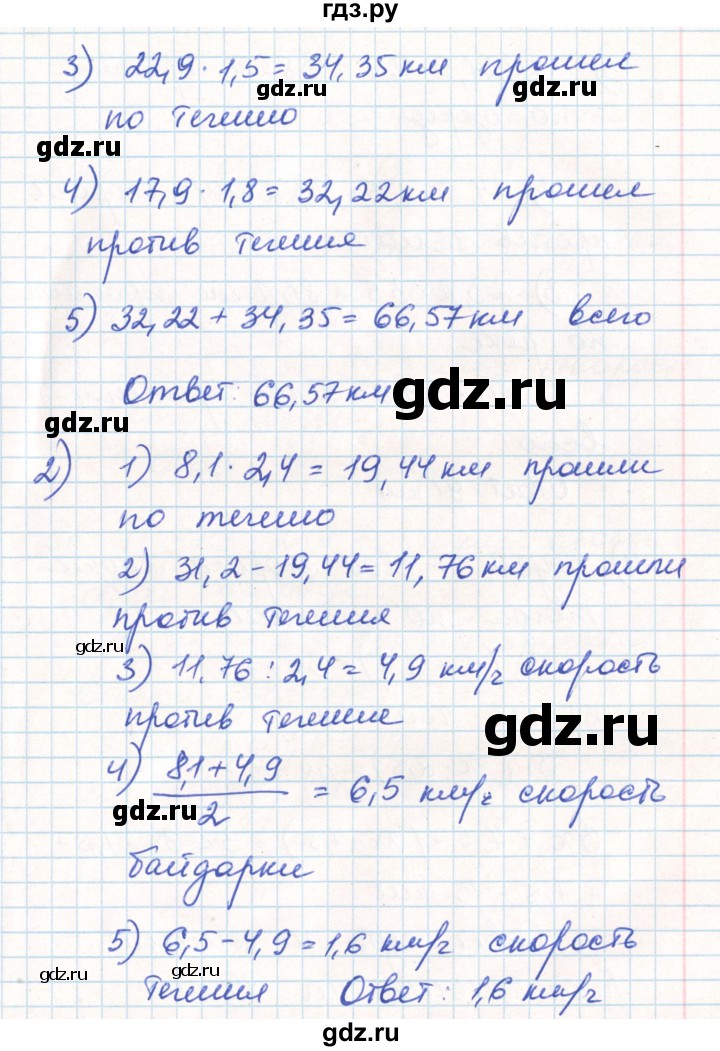 гдз.ру
3) 22,9 · 1,5 = 34,35 км прошел
gdz.ru gdz.ru
по течению
gdz.ru
4) 17,9 · 1,8 = 32,22 км прошел
против течения
5) 32,22 + 34,35 = 66,57 км всего
Ответ: 66,57 км
gdz.ru
gdz.ru
2) 1) 8,1 · 2,4 = 19,44 км прошли
по течению
2) 31,2 - 19,44 = 11,76 км прошли
против течения
gdz.ru
3) 11,76 : 2,4 = 4,9 км/ч скорость
против течение
gdz.ru
4) 8,1 + 4,9 / 2 = 6,5 км/ч скорость
gdz.ru
байдарки
5) 6,5 - 4,9 = 1,6 км/ч скорость
gdz.ru gdz.ru
течения Ответ: 1,6 км/ч
gdz.ru